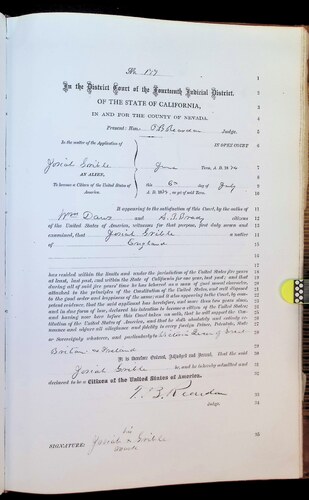 No.
1
In the District Court of the Fourteenth Judicial District,
OF THE STATE OF CALIFORNIA,
IN AND FOR THE COUNTY OF NEVADA.
Present: Hon. Judge.
In the matter of the Application of
IN OPEN COURT
Josiah Grible
June Term, A. D. 18
AN ALIEN,
To become a Citizen of the United States of America
this 6th day of July
A. D. 18 as yet of said Term.
It appearing to the satisfaction of this Court, by the oaths of
Wm and citizens
of the United States of America, witnesses for that purpose, first duly sworn and
examined, that Josiah Grible a native
of England
has resided within the limits and under the jurisdiction of the United States five years
at least, last past, and within the State of California for one year, last past; and that
during all of said five years' time he has behaved as a man of good moral character,
attached to the principles of the Constitution of the United States, and well disposed
to the good order and happiness of the same; and it also appearing to the Court, by com-
petent evidence, that the said applicant has heretofore, and more than two years since,
and in due form of law, declared his intention to become a citizen of the United States;
and having now here before this Court taken an oath, that he will support the Con-
stitution of the United States of America, and that he doth absolutely and entirely re-
nounce and abjure all allegiance and fidelity to every foreign Prince, Potentate, State
or Sovereignty whatever, and particularly to Victoria Queen of Great
Britain and Ireland
It is therefore Ordered, Adjudged and Decreed, That the said
Josiah Grible be, and he hereby admitted and
declared to be a Citizen of the United States of America.
Judge.
his
SIGNATURE: Josiah x Grible
mark